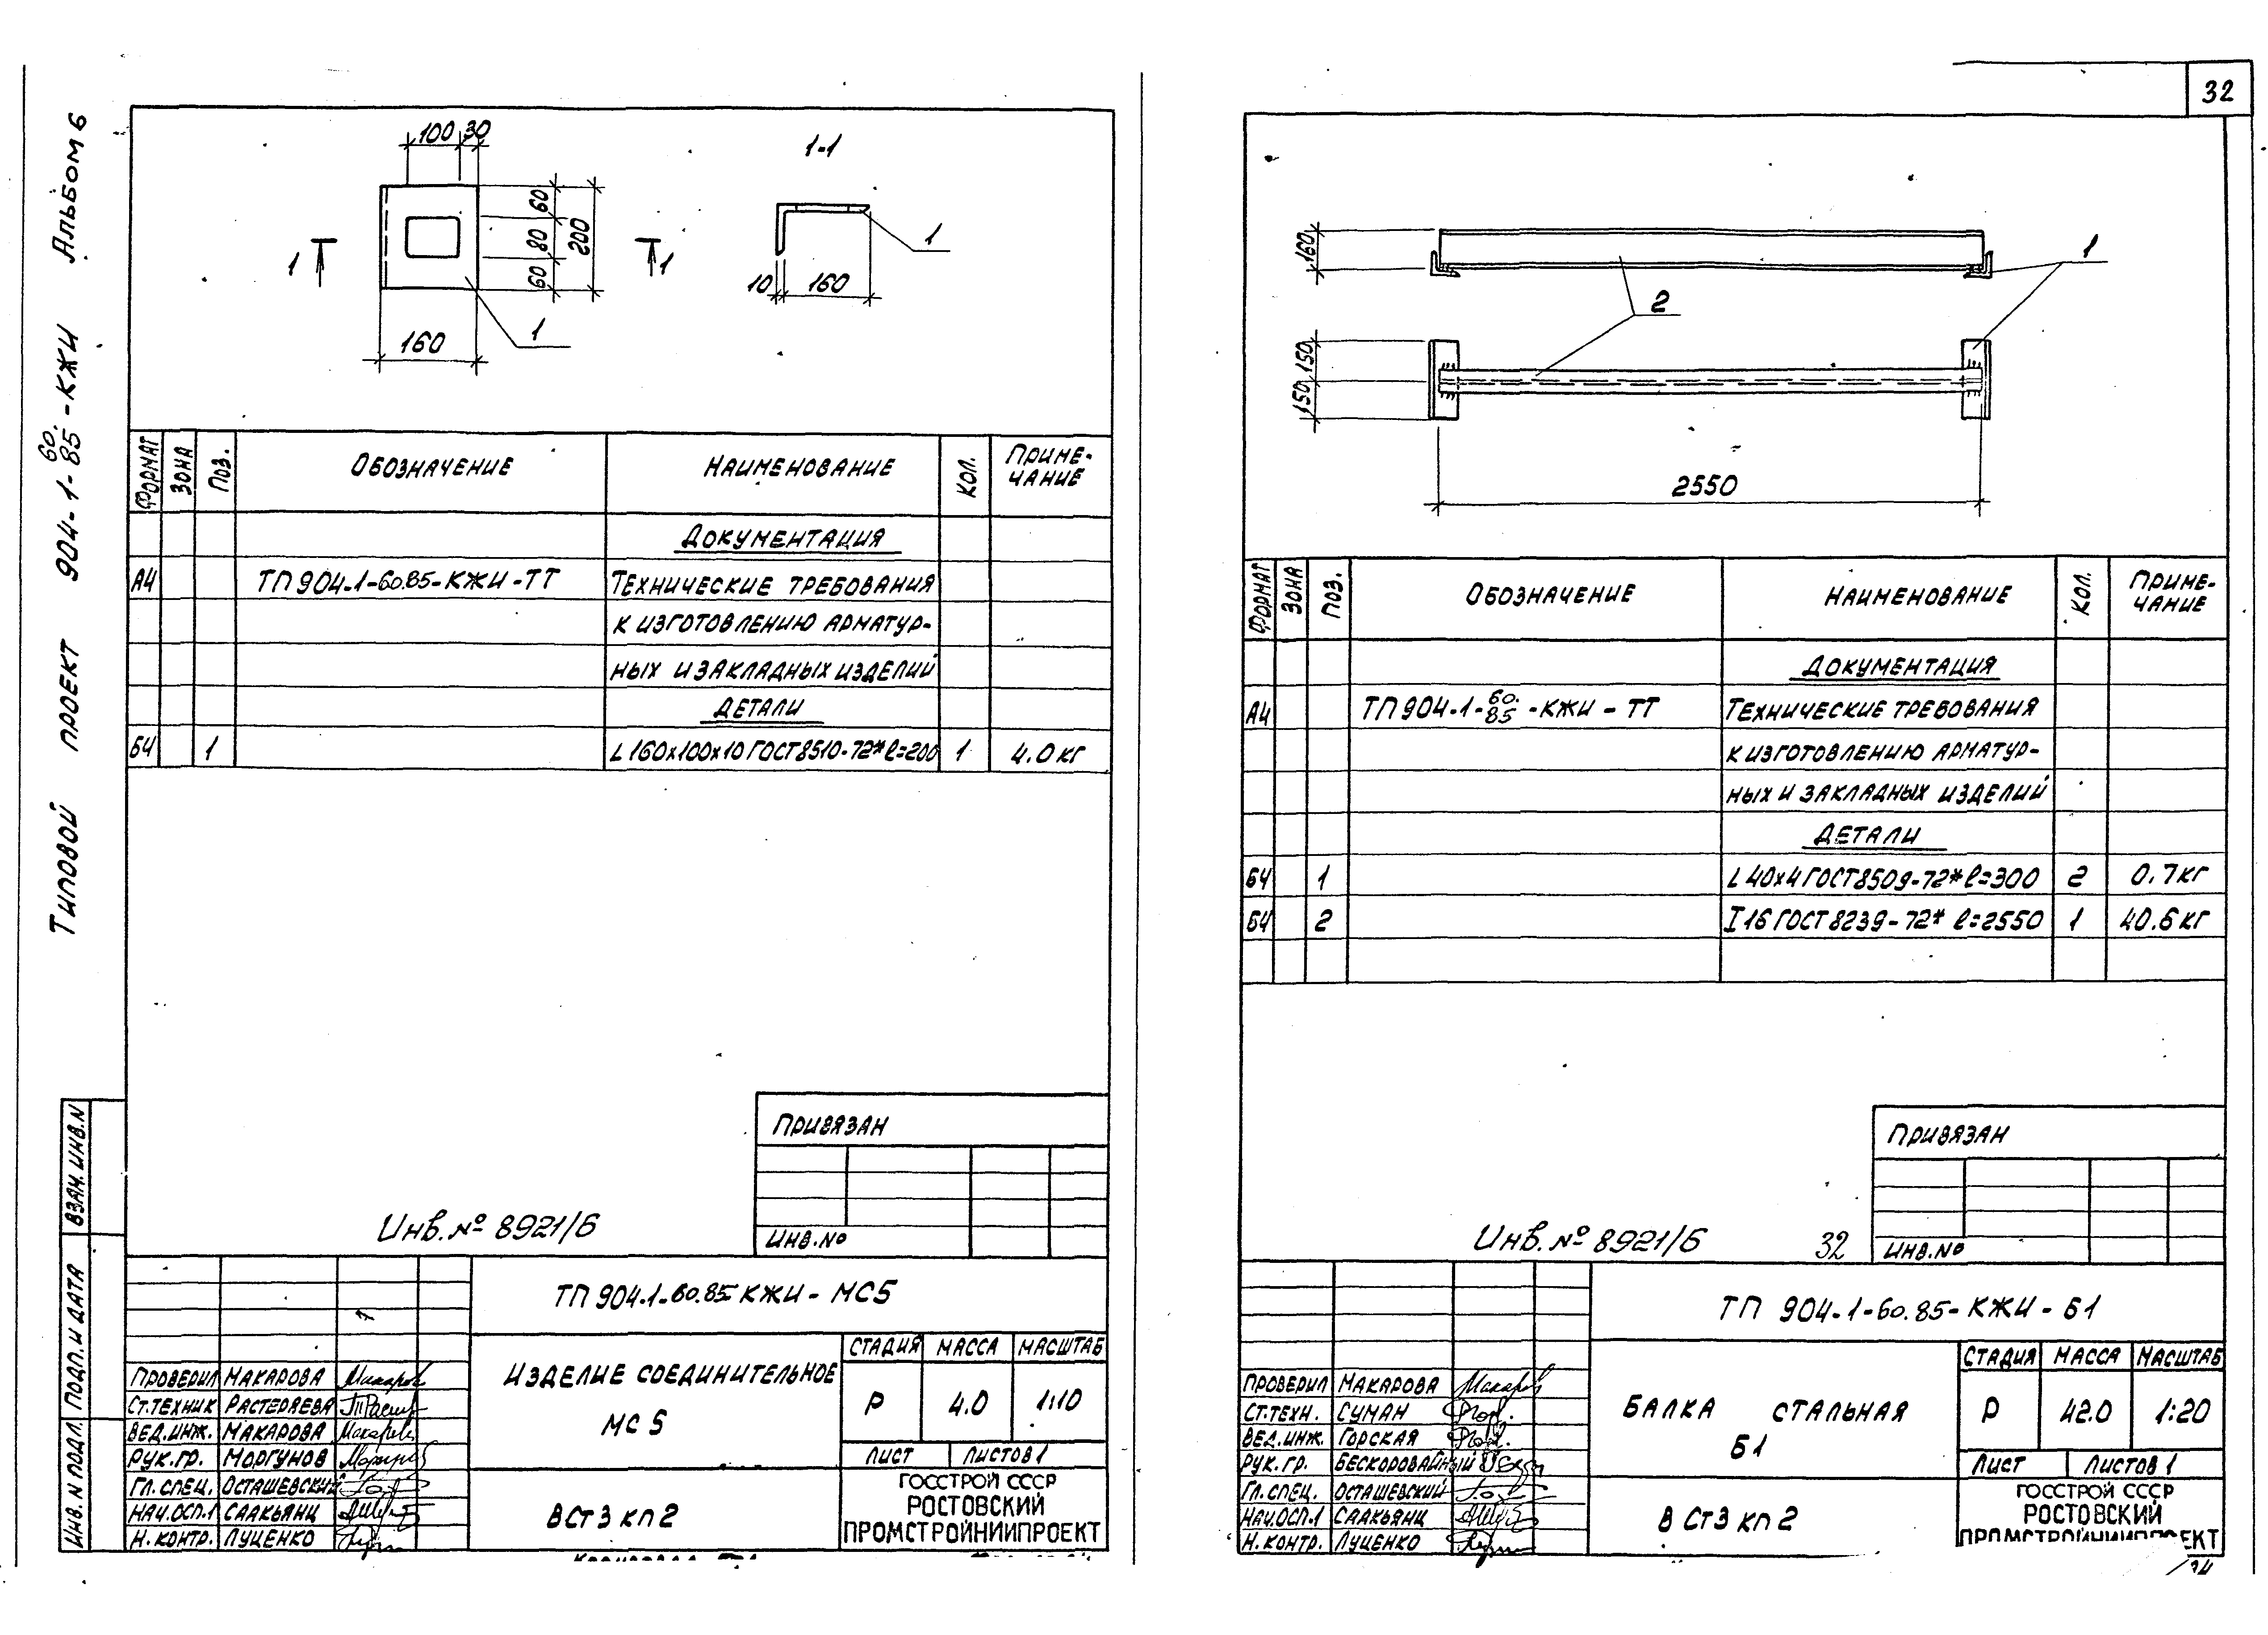 Типовой проект 904-1-60.85-КЖИ Альбом 6
100 30
1-1
60
80
60
200
1 1
1
160
1
10 160
ФОРМАТ ЗОНА ПОЗ. ОБОЗНАЧЕНИЕ НАИМЕНОВАНИЕ КОЛ. ПРИМЕ-
ЧАНИЕ
ДОКУМЕНТАЦИЯ
А4 ТП 904-1-60.85-КЖИ-ТТ ТЕХНИЧЕСКИЕ ТРЕБОВАНИЯ
К ИЗГОТОВЛЕНИЮ АРМАТУР-
НЫХ И ЗАКЛАДНЫХ ИЗДЕЛИЙ
ДЕТАЛИ
БЧ 1 L 160х100х10 ГОСТ 8510-72* ℓ=200 1 4.0 кг
ПРИВЯЗАН
ИНВ.№
Инв.№ 8921/6
ВЗАМ.ИНВ.N
ПОДП. И ДАТА
ИНВ. N ПОДЛ.
ТП 904-1-60.85-КЖИ-МС5
ИЗДЕЛИЕ СОЕДИНИТЕЛЬНОЕ
МС 5
СТАДИЯ МАССА МАСШТАБ
Р 4.0 1:10
ЛИСТ ЛИСТОВ 1
ПРОВЕРИЛ МАКАРОВА
СТ.ТЕХНИК РАСТЕРЯЕВА
ВЕД.ИНЖ. МАКАРОВА
РУК.ГР. МОРГУНОВ
ГЛ.СПЕЦ. ОСТАШЕВСКИЙ
НАЧ.ОСП-1 СААКЬЯНЦ
Н.КОНТР. ЛУЦЕНКО
В СТ 3 КП 2
ГОССТРОЙ СССР
РОСТОВСКИЙ
ПРОМСТРОЙНИИПРОЕКТ
32
160
1
2
150
150
2550
ФОРМАТ ЗОНА ПОЗ. ОБОЗНАЧЕНИЕ НАИМЕНОВАНИЕ КОЛ. ПРИМЕ-
ЧАНИЕ
ДОКУМЕНТАЦИЯ
А4 ТП 904-1-60.85-КЖИ-ТТ ТЕХНИЧЕСКИЕ ТРЕБОВАНИЯ
К ИЗГОТОВЛЕНИЮ АРМАТУР-
НЫХ И ЗАКЛАДНЫХ ИЗДЕЛИЙ
ДЕТАЛИ
БЧ 1 L 40х4 ГОСТ 8509-72* ℓ=300 2 0.7 кг
БЧ 2 I 16 ГОСТ 8239-72* ℓ=2550 1 40.6 кг
ПРИВЯЗАН
ИНВ.№
Инв.№ 8921/6 32
ТП 904-1-60.85-КЖИ-Б1
БАЛКА СТАЛЬНАЯ
Б1
СТАДИЯ МАССА МАСШТАБ
Р 42.0 1:20
ЛИСТ ЛИСТОВ 1
ПРОВЕРИЛ МАКАРОВА
СТ.ТЕХН. СУМАН
ВЕД.ИНЖ. ГОРСКАЯ
РУК.ГР. БЕСКОРОВАЙНЫЙ
ГЛ.СПЕЦ. ОСТАШЕВСКИЙ
НАЧ.ОСП-1 СААКЬЯНЦ
Н.КОНТР. ЛУЦЕНКО
В СТ 3 КП 2
ГОССТРОЙ СССР
РОСТОВСКИЙ
ПРОМСТРОЙНИИПРОЕКТ